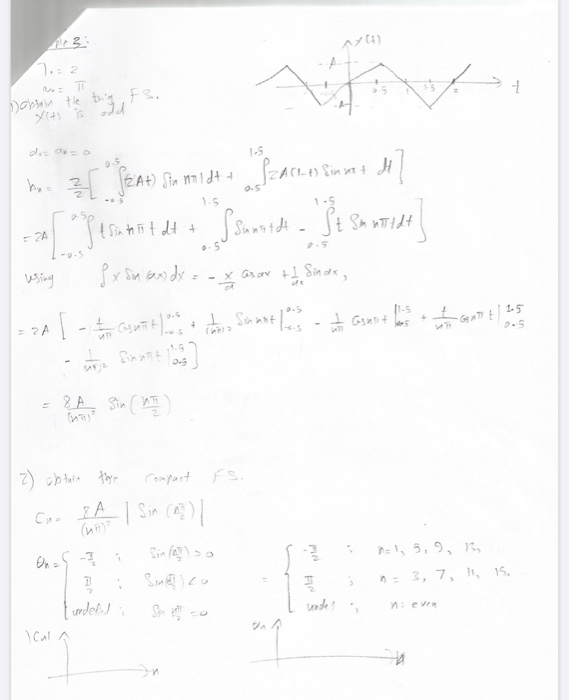 ple 3:
T₀ = 2
ω₀ = π
1) obtain the trig FS.
x(t) is odd
x(t)
A
-A
0.5
1
1.5
2
t
a₀ = aₙ = 0
bₙ = 2/2 [ ∫_{-0.5}^{0.5} 2At) Sin nπt dt + ∫_{0.5}^{1.5} 2A(1-t) Sin nπt dt ]
= 2A [ ∫_{-0.5}^{0.5} t Sin nπt dt + ∫_{0.5}^{1.5} Sin nπt dt - ∫_{0.5}^{1.5} t Sin nπt dt ]
using ∫ x Sin (ax) dx = - x/a Cos ax + 1/a² Sin ax,
= 2A [ - t/nπ Cos nπt |_{-0.5}^{0.5} + 1/(nπ)² Sin nπt |_{-0.5}^{0.5} - 1/nπ Cos nπt |_{0.5}^{1.5} + t/nπ Cos nπt |_{0.5}^{1.5}
- 1/(nπ)² Sin nπt |_{0.5}^{1.5} ]
= 8A/(nπ)² Sin (nπ/2)
2) obtain the compact FS.
Cₙ = 8A/(nπ)² | Sin (nπ/2) |
θₙ = { -π/2 ; Sin(nπ/2) > 0 = { -π/2 ; n = 1, 5, 9, 13,
π/2 ; Sin(nπ/2) < 0 π/2 ; n = 3, 7, 11, 15,
undefined ; Sin nπ/2 = 0 undef ; n: even
|Cn|
n
θn
n